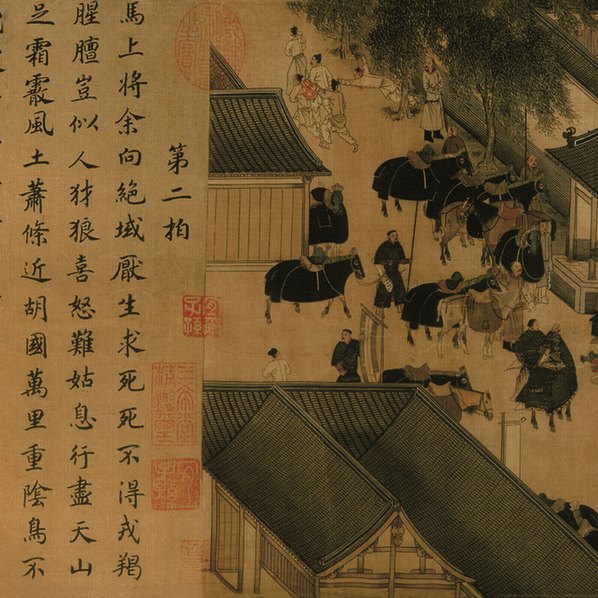 第二拍
馬上将余向絕域厭生求死死不得戎羯
腥膻豈似人犲狼喜怒難姑息行盡天山
足霜霰風土蕭條近胡國萬里重陰鳥不
宜子孫
三希堂精鑑璽